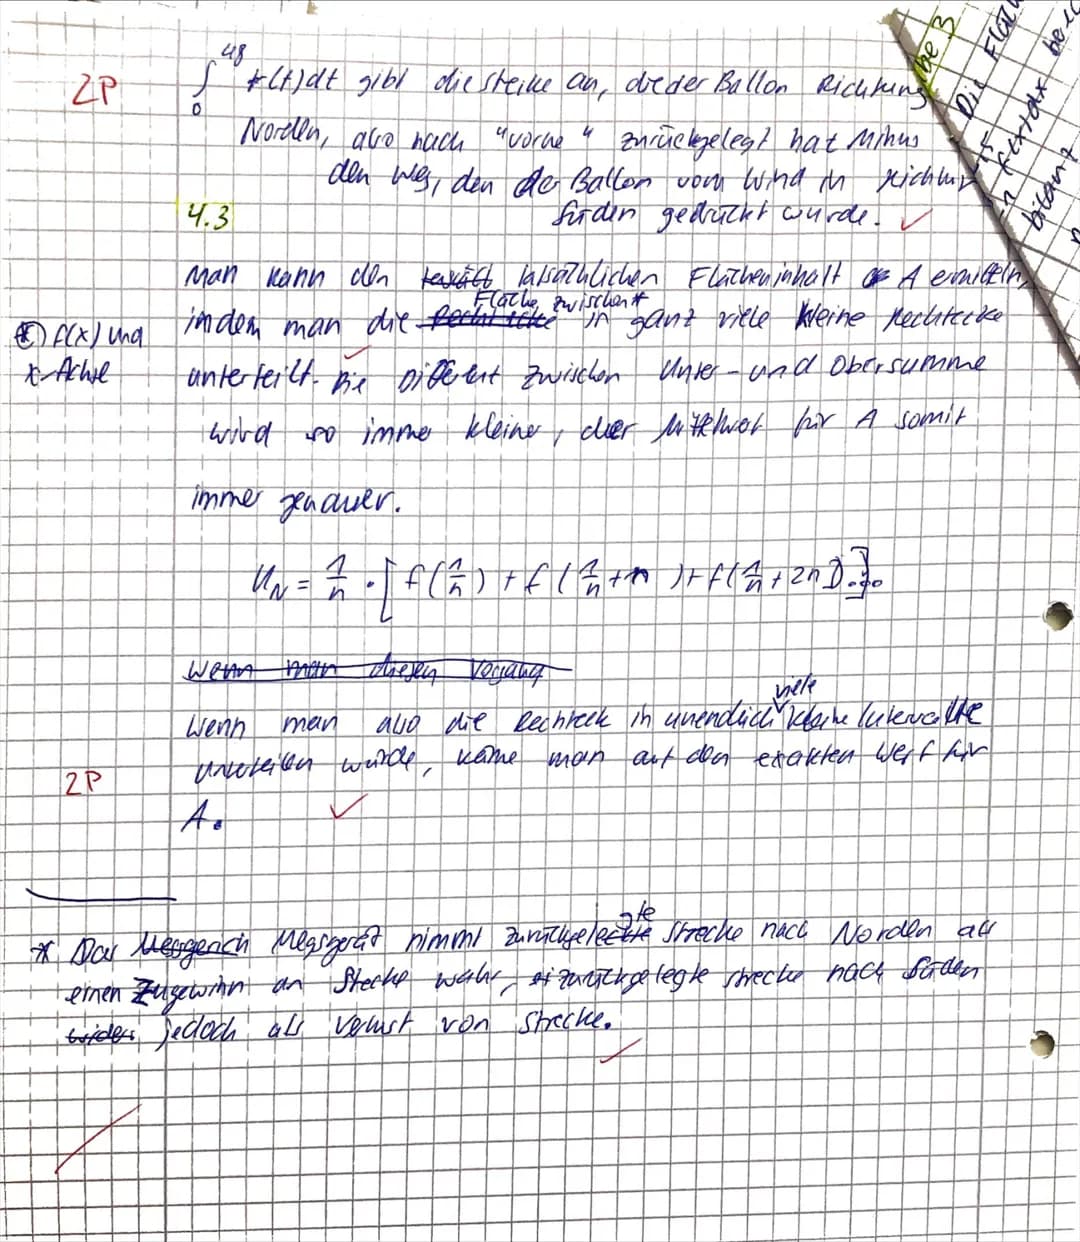 2P
48
∫ f(t)dt gibt die Strecke an, die der Ballon Richtung
0
Norden, also nach "vorne" zurückgelegt hat Minus
den Weg, den der Ballon vom Wind in
Süden gedrückt wurde. ✓
4.3
Man kann den tatsächlichen Flächeninhalt A ermitteln,
Fläche zwischen *
indem man die Rechtecke in ganz viele kleine Rechtecke
*) f(x) und
x-Achse
unterteilt. Die Differenz zwischen Unter- und Obersumme
wird so immer kleiner, der Mittelwert für A somit
immer genauer.
U_N = 1/n · [ f(1/n) + f(1/n + n) + f(1/n + 2n)...]
Wenn man diesen Vorgang
viele
Wenn man also die Rechteck in unendlich kleine Intervalle
unterteilen würde, käme man auf den exakten Wert für
2P
A. ✓
* Das Messgerät nimmt zurückgelegte Strecke nach Norden als
einen Zugewinn an Strecke wahr, zurückgelegte Strecke nach Süden
jedoch als Verlust von Strecke. ✓
be 3
Die
bilanz